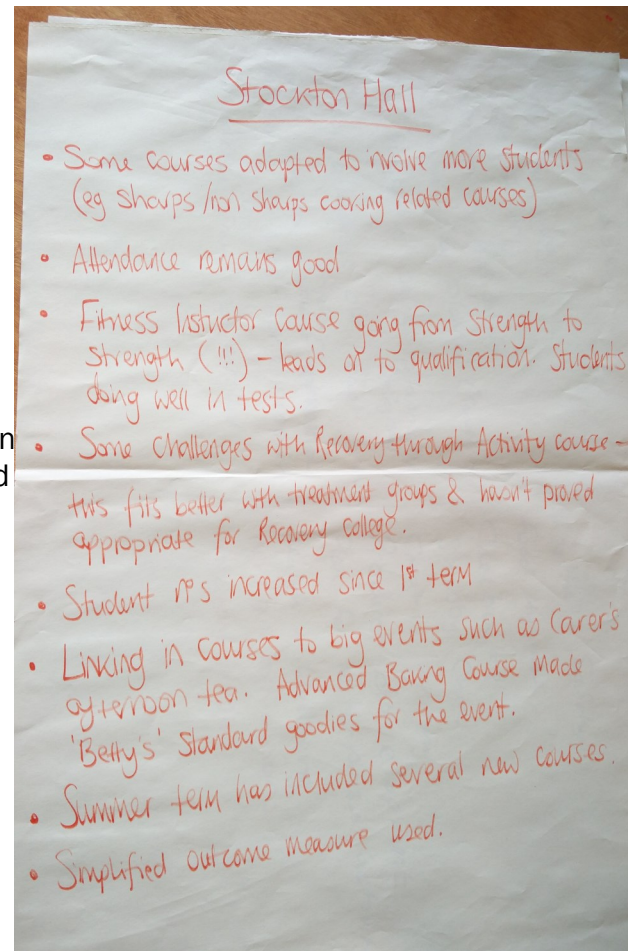 Stockton Hall
• Some courses adapted to involve more students
(eg sharps/non sharps cooking related courses)
• Attendance remains good
• Fitness Instuctor Course going from Strength to
Strength (!!!) - leads on to qualification. Students
doing well in tests.
n
• Some challenges with Recovery through Activity course -
d
this fits better with treatment groups & hasn't proved
appropriate for Recovery college.
• Student nos increased since 1st term
• Linking in courses to big events such as Carer's
afternoon tea. Advanced Baking Course made
'Betty's' Standard goodies for the event.
• Summer term has included several new courses.
• Simplified outcome measure used.